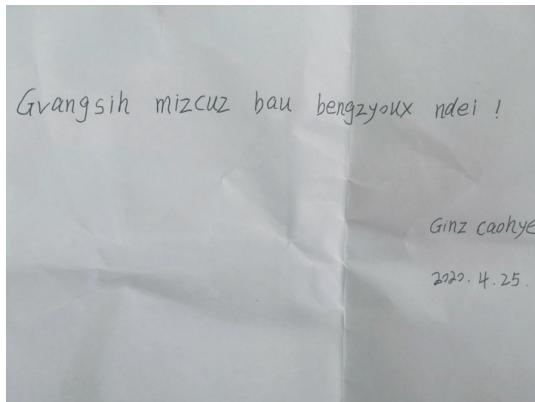 Gvangsih mizcuz bau bengzyoux ndei !
Ginz caohye
2020.4.25.